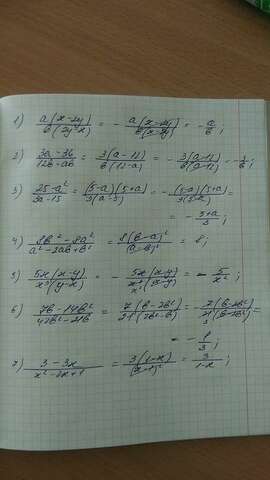 1) a(x-2y)/b(2y-x) = - a(x-2y)/b(x-2y) = - a/b ;
2) 3a-36/12b-ab = 3(a-12)/b(12-a) = - 3(a-12)/b(a-12) = - 3/b
3) 25-a²/3a-15 = (5-a)(5+a)/3(a-5) = - (5-a)(5+a)/3(5-a) =
= - 5+a/3 ;
4) 8b²-8a²/a²-2ab+b² = 8(b-a)²/(a-b)² = 8 ;
5) 5x(x-y)/x³(y-x) = - 5x(x-y)/x³(x-y) = - 5/x² ;
6) 7b-14b²/42b²-21b = 7(b-2b²)/21(2b²-b) = - 7(b-2b²)/21(b-2b²) =
= - 1/3 ;
7) 3-3x/x²-2x+1 = 3(1-x)/(x-1)² = 3/1-x ;